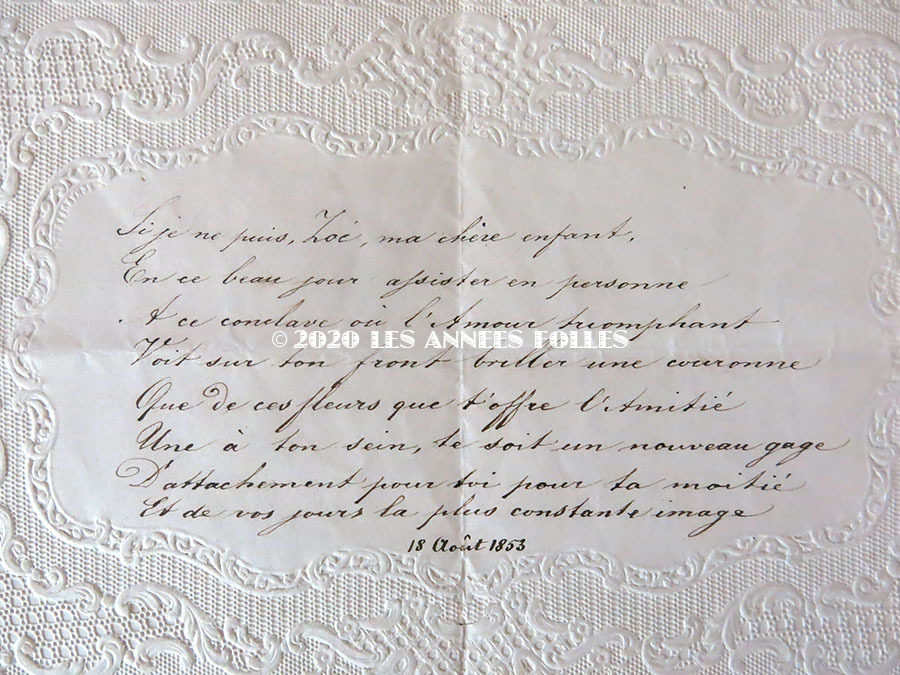 Si je ne puis, Zoé, ma chère enfant,
En ce beau jour assister en personne
A ce conclave où l'Amour triomphant
© 2020 LES ANNEES FOLLES
Voit sur ton front briller une couronne
Que de ces fleurs que t'offre l'Amitié
Une à ton sein, te soit un nouveau gage
D'attachement pour toi pour ta moitié
Et de vos jours la plus constante image
18 Août 1853